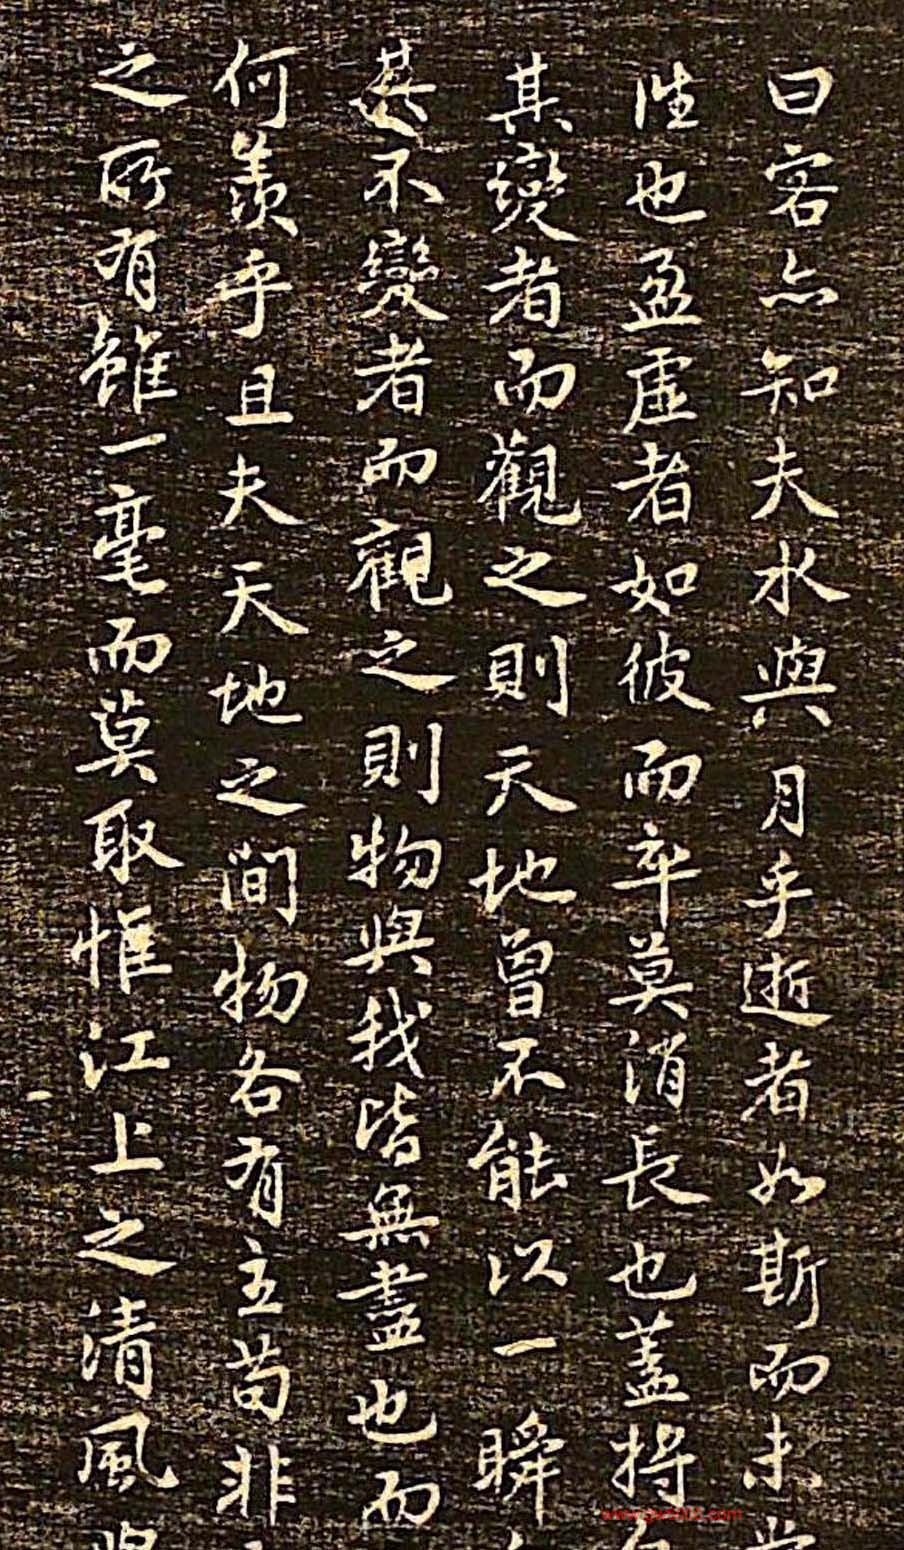 曰客亦知夫水與月乎逝者如斯而未
往也盈虛者如彼而卒莫消長也蓋將
其變者而觀之則天地曾不能以一瞬
其不變者而觀之則物與我皆無盡也而
何羨乎且夫天地之間物各有主苟非
之所有雖一毫而莫取惟江上之清風